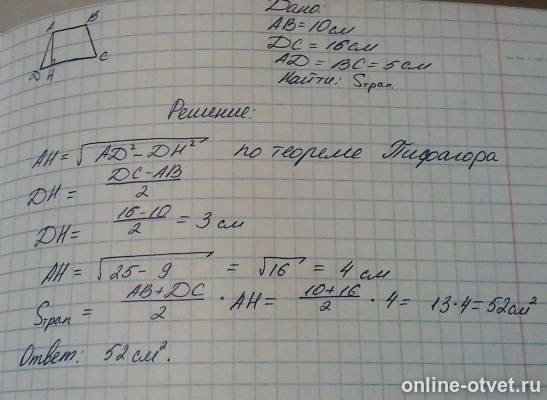 A B
D H C
Дано:
AB = 10 см
DC = 16 см
AD = BC = 5 см
Найти: Sтрап.
Решение:
AH = √AD² - DH² по теореме Пифагора
DH = DC - AB / 2
DH = 16 - 10 / 2 = 3 см
AH = √25 - 9 = √16 = 4 см
Sтрап = AB + DC / 2 · AH = 10 + 16 / 2 · 4 = 13 · 4 = 52 см²
Ответ: 52 см².
online-otvet.ru